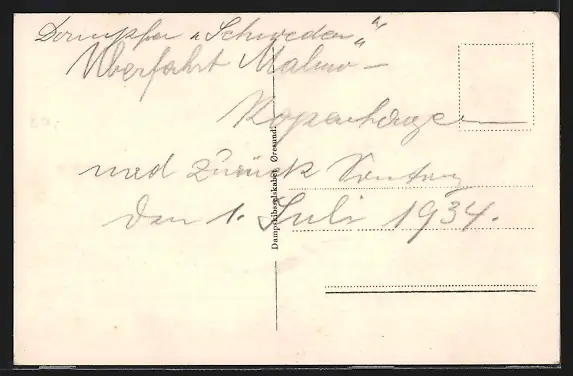 Dampfer "Schweden"
Überfahrt Malmö –
Kopenhagen
und zurück Sonntag
den 1. Juli 1934.
Dampskibsselskabet Øresund.